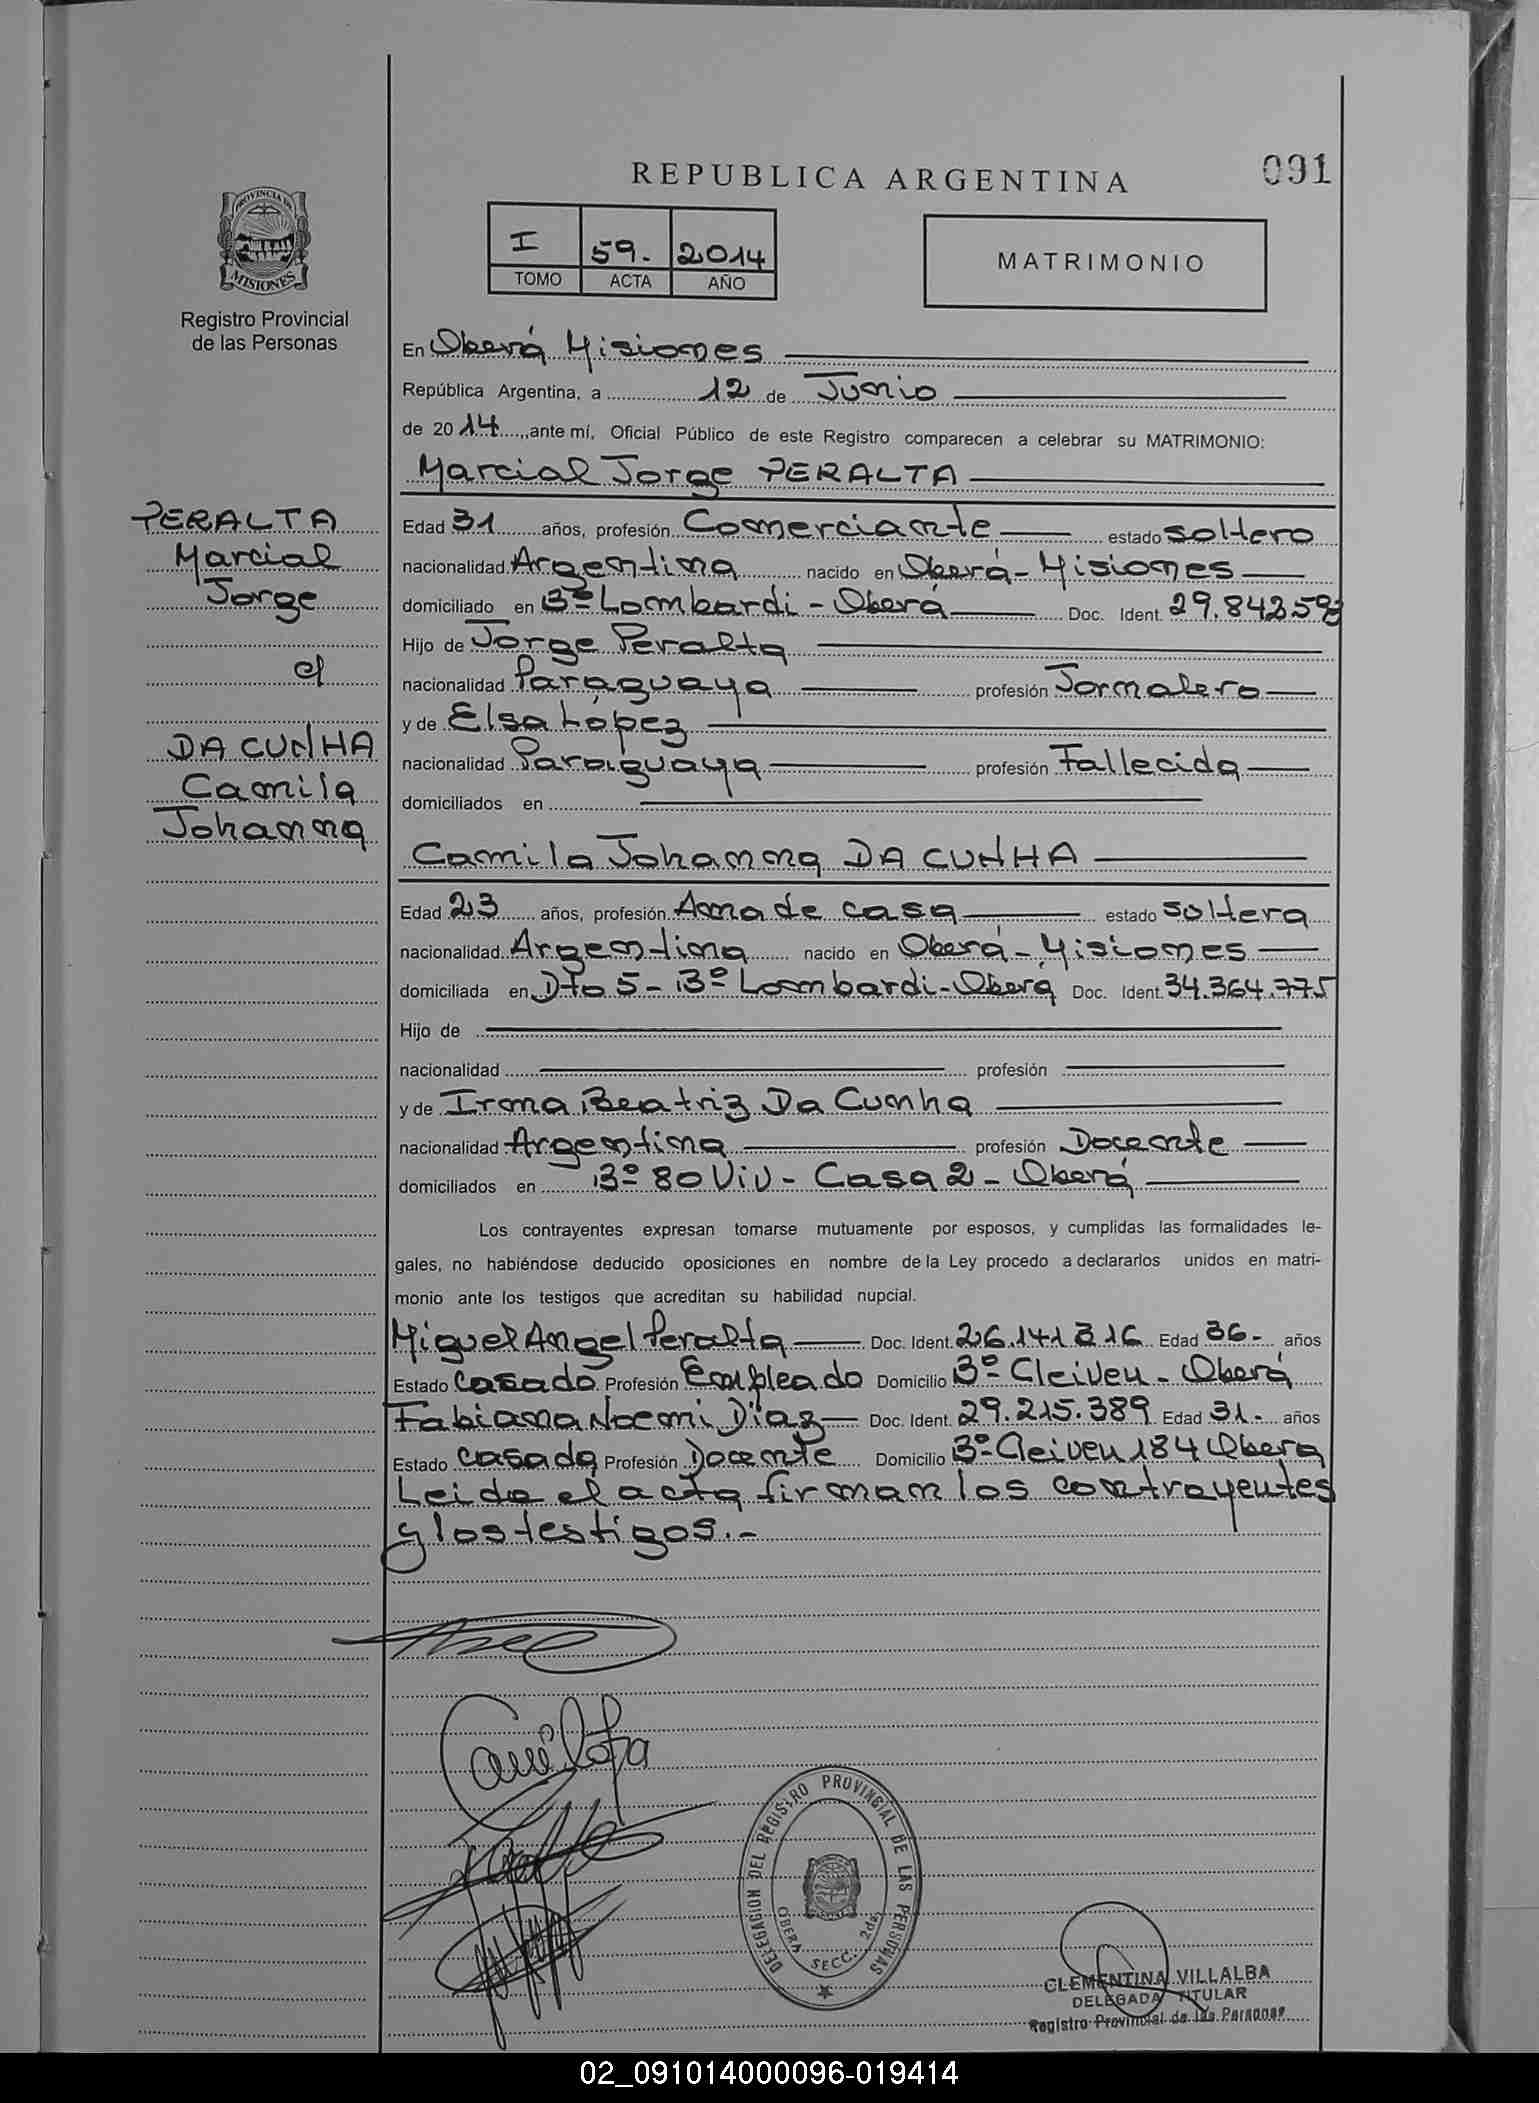 REPUBLICA ARGENTINA
091
PROVINCIA DE
MISIONES
Registro Provincial
de las Personas
I 59. 2014
TOMO ACTA AÑO
MATRIMONIO
En Oberá Misiones
República Argentina, a 12 de Junio
de 2014, ante mí, Oficial Público de este Registro comparecen a celebrar su MATRIMONIO:
Marcial Jorge PERALTA
PERALTA
Marcial
Jorge
c/
DA CUNHA
Camila
Johanna
Edad 31 años, profesión Comerciante estado soltero
nacionalidad Argentina nacido en Oberá - Misiones
domiciliado en Bº Lombardi - Oberá Doc. Ident. 29.842.59
Hijo de Jorge Peralta
nacionalidad Paraguaya profesión Jornalero
y de Elsa López
nacionalidad Paraguaya profesión Fallecida
domiciliados en
Camila Johanna DA CUNHA
Edad 23 años, profesión Ama de casa estado soltera
nacionalidad Argentina nacido en Oberá - Misiones
domiciliada en Dto 5 - Bº Lombardi - Oberá Doc. Ident. 34.364.775
Hijo de
nacionalidad profesión
y de Irma Beatriz Da Cunha
nacionalidad Argentina profesión Docente
domiciliados en Bº 80 Viv - Casa 2 - Oberá
Los contrayentes expresan tomarse mutuamente por esposos, y cumplidas las formalidades le-
gales, no habiéndose deducido oposiciones en nombre de la Ley procedo a declararlos unidos en matri-
monio ante los testigos que acreditan su habilidad nupcial.
Miguel Angel Peralta Doc. Ident. 26.141.316 Edad 36.- años
Estado Casado Profesión Empleado Domicilio Bº Cleiveu - Oberá
Fabiana Noemi Díaz Doc. Ident. 29.215.389 Edad 31.- años
Estado casada Profesión Docente Domicilio Bº Cleiveu 184 Obera
Leida el acta firman los contrayentes
y los testigos.-
Camila
DELEGACION DEL REGISTRO PROVINCIAL DE LAS PERSONAS
OBERA SECC. 2da
CLEMENTINA VILLALBA
DELEGADA TITULAR
Registro Provincial de las Personas
02_091014000096-019414